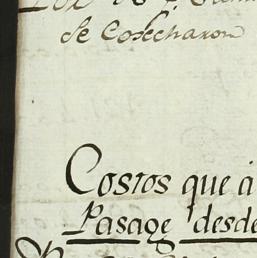 se Cosecharon
Costos que á
Pasage desde